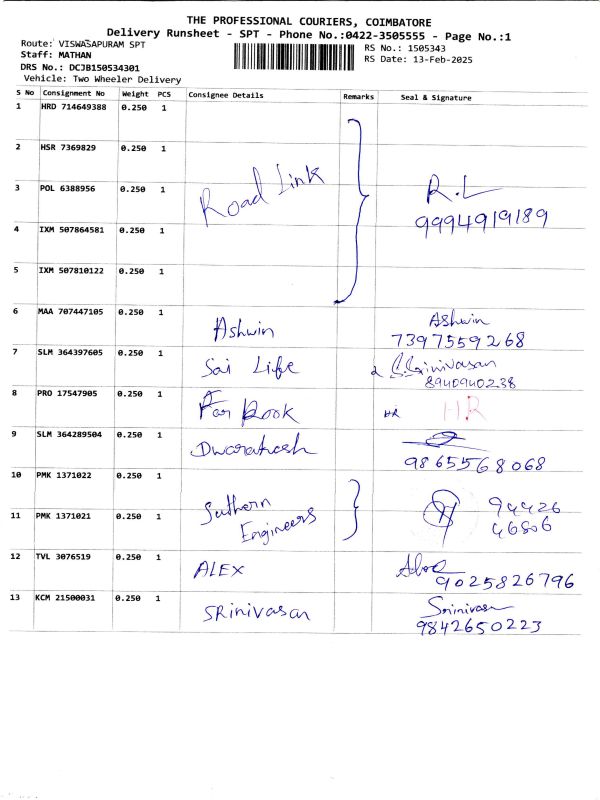 THE PROFESSIONAL COURIERS, COIMBATORE
Delivery Runsheet - SPT - Phone No.:0422-3505555 - Page No.:1
Route: VISWASAPURAM SPT
RS No.: 1505343
Staff: MATHAN
RS Date: 13-Feb-2025
DRS No.: DCJB150534301
Vehicle: Two Wheeler Delivery
S No Consignment No Weight PCS Consignee Details Remarks Seal & Signature
1 HRD 714649388 0.250 1
2 HSR 7369829 0.250 1
3 POL 6388956 0.250 1 Road Link R.L
9994919189
4 IXM 507864581 0.250 1
5 IXM 507810122 0.250 1
6 MAA 707447105 0.250 1 Ashwin Ashwin
7397559268
7 SLM 364397605 0.250 1 Sai Life Srinivasan
8940940238
8 PRO 17547905 0.250 1 HR HR
9 SLM 364289504 0.250 1
9865568068
10 PMK 1371022 0.250 1 Suthern 94426
11 PMK 1371021 0.250 1 Engineers 46806
12 TVL 3076519 0.250 1 ALEX
9025826796
13 KCM 21500031 0.250 1 SRinivasan Srinivasan
9842650223